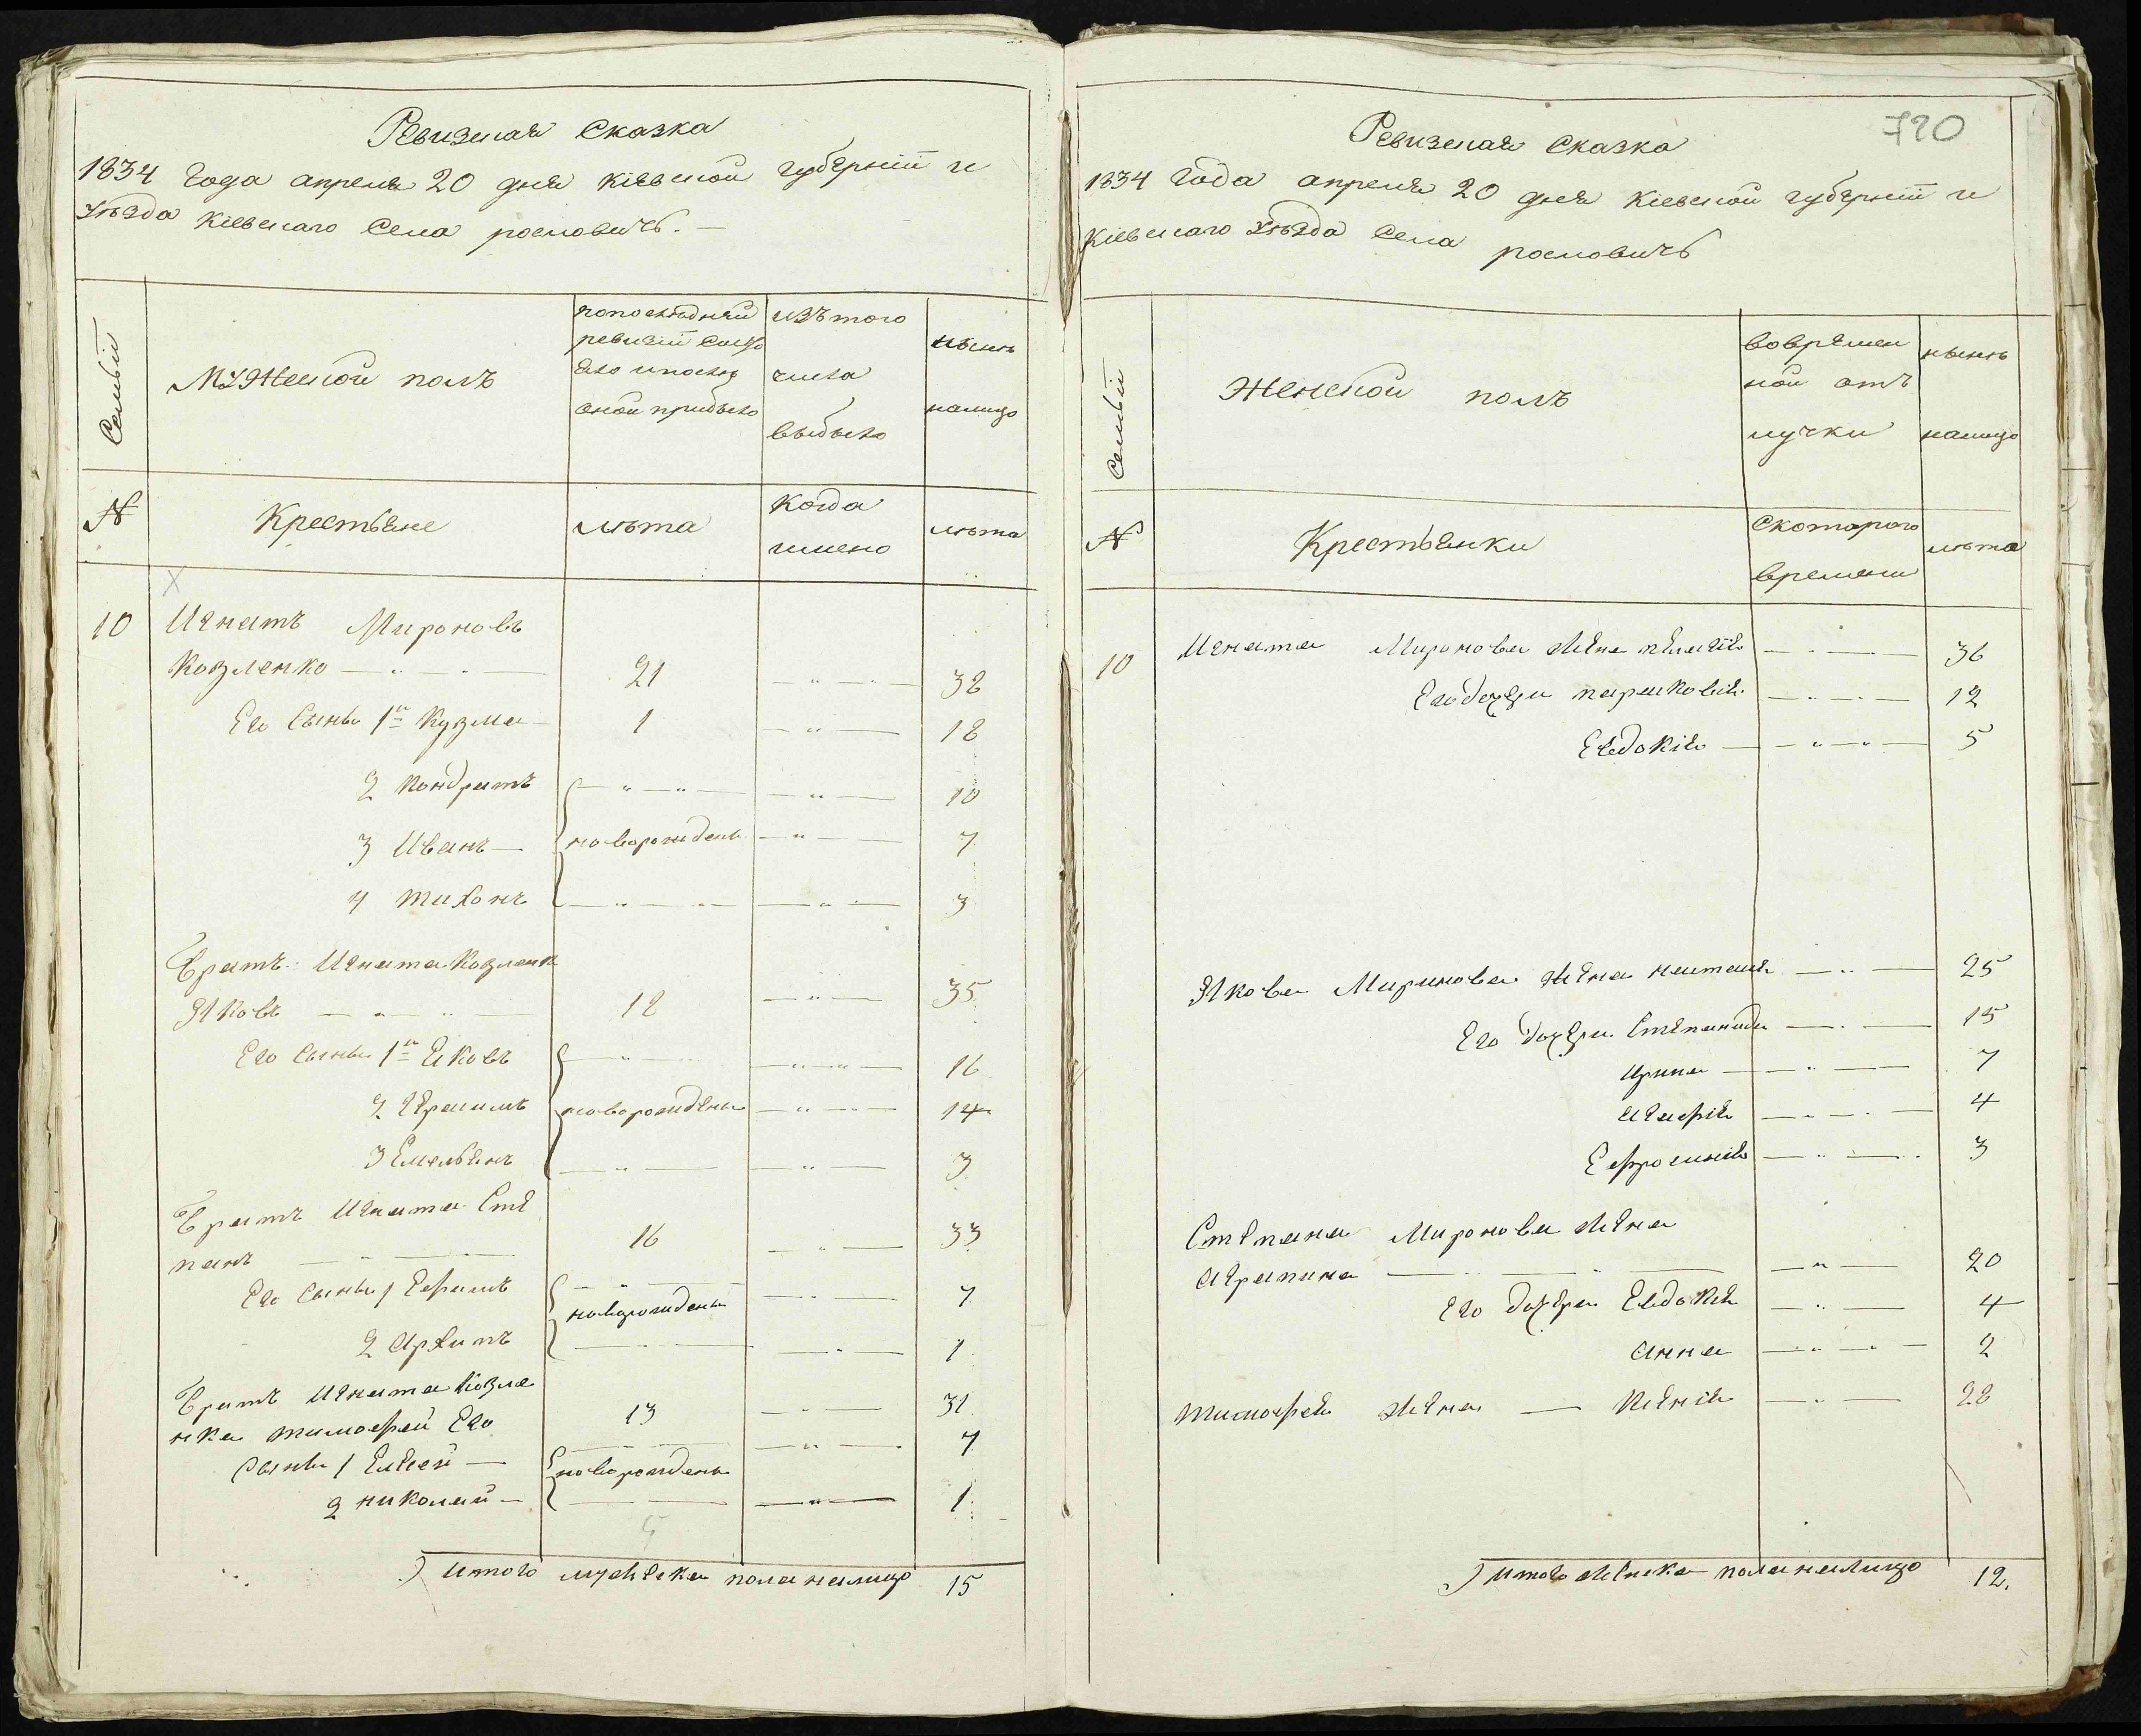 Ревизская Сказка
1834 Года апреля 20 дня Кіевской губерніи и
Уѣзда Кіевскаго Села рословичь. —
Семьи
Мужеской полъ
попоследней
ревизіи Состо
яло ипослѣ
оной прибыло
изъ того
числа
выбыло
нынѣ
налицо
№
Крестьяне
лѣта
Когда
имено
лѣта
10 Игнатъ Мироновъ
Козленко 21 38
Его Сынъ 1й Кузма 1 18
2 Кондратъ 10
3 Иванъ новорожденъ 7
4 тихонъ 3
братъ Игната Козленк
Яковъ 18 35
Его Сынъ 1й Яковъ 16
2 новорожденъ 14
3 Емельянъ 3
братъ Игната Сте
панъ 16 33
Его Сынъ 1 Ефимъ новорожденъ 7
2 Архипъ 1
братъ Игната Козле
нка тимофей Его 13 31
Сынъ 1 Елисей новорожденъ 7
2 николай 1
5
Итого мужеска пола налицо 15
720
Ревизская Сказка
1834 Года апреля 20 дня Кіевской губерніи и
Кіевскаго Уѣзда Села рословичь
Семьи
Женской полъ
вовремен
ной отъ
лучки
нынѣ
налицо
№
Крестьянки
Скоторого
времени
лѣта
10 Игната Миронова жена пелагія 36
Его дочери парасковія 12
Евдокія 5
Якова Миронова жена наталія 25
Его дочери Степанида 15
Ирина 7
агафія 4
Ефросинія 3
Степана Миронова жена
агрипина 20
Его дочери Евдокія 4
анна 2
тимофея жена — Ксенія 28
Итого женска пола налицо 12.